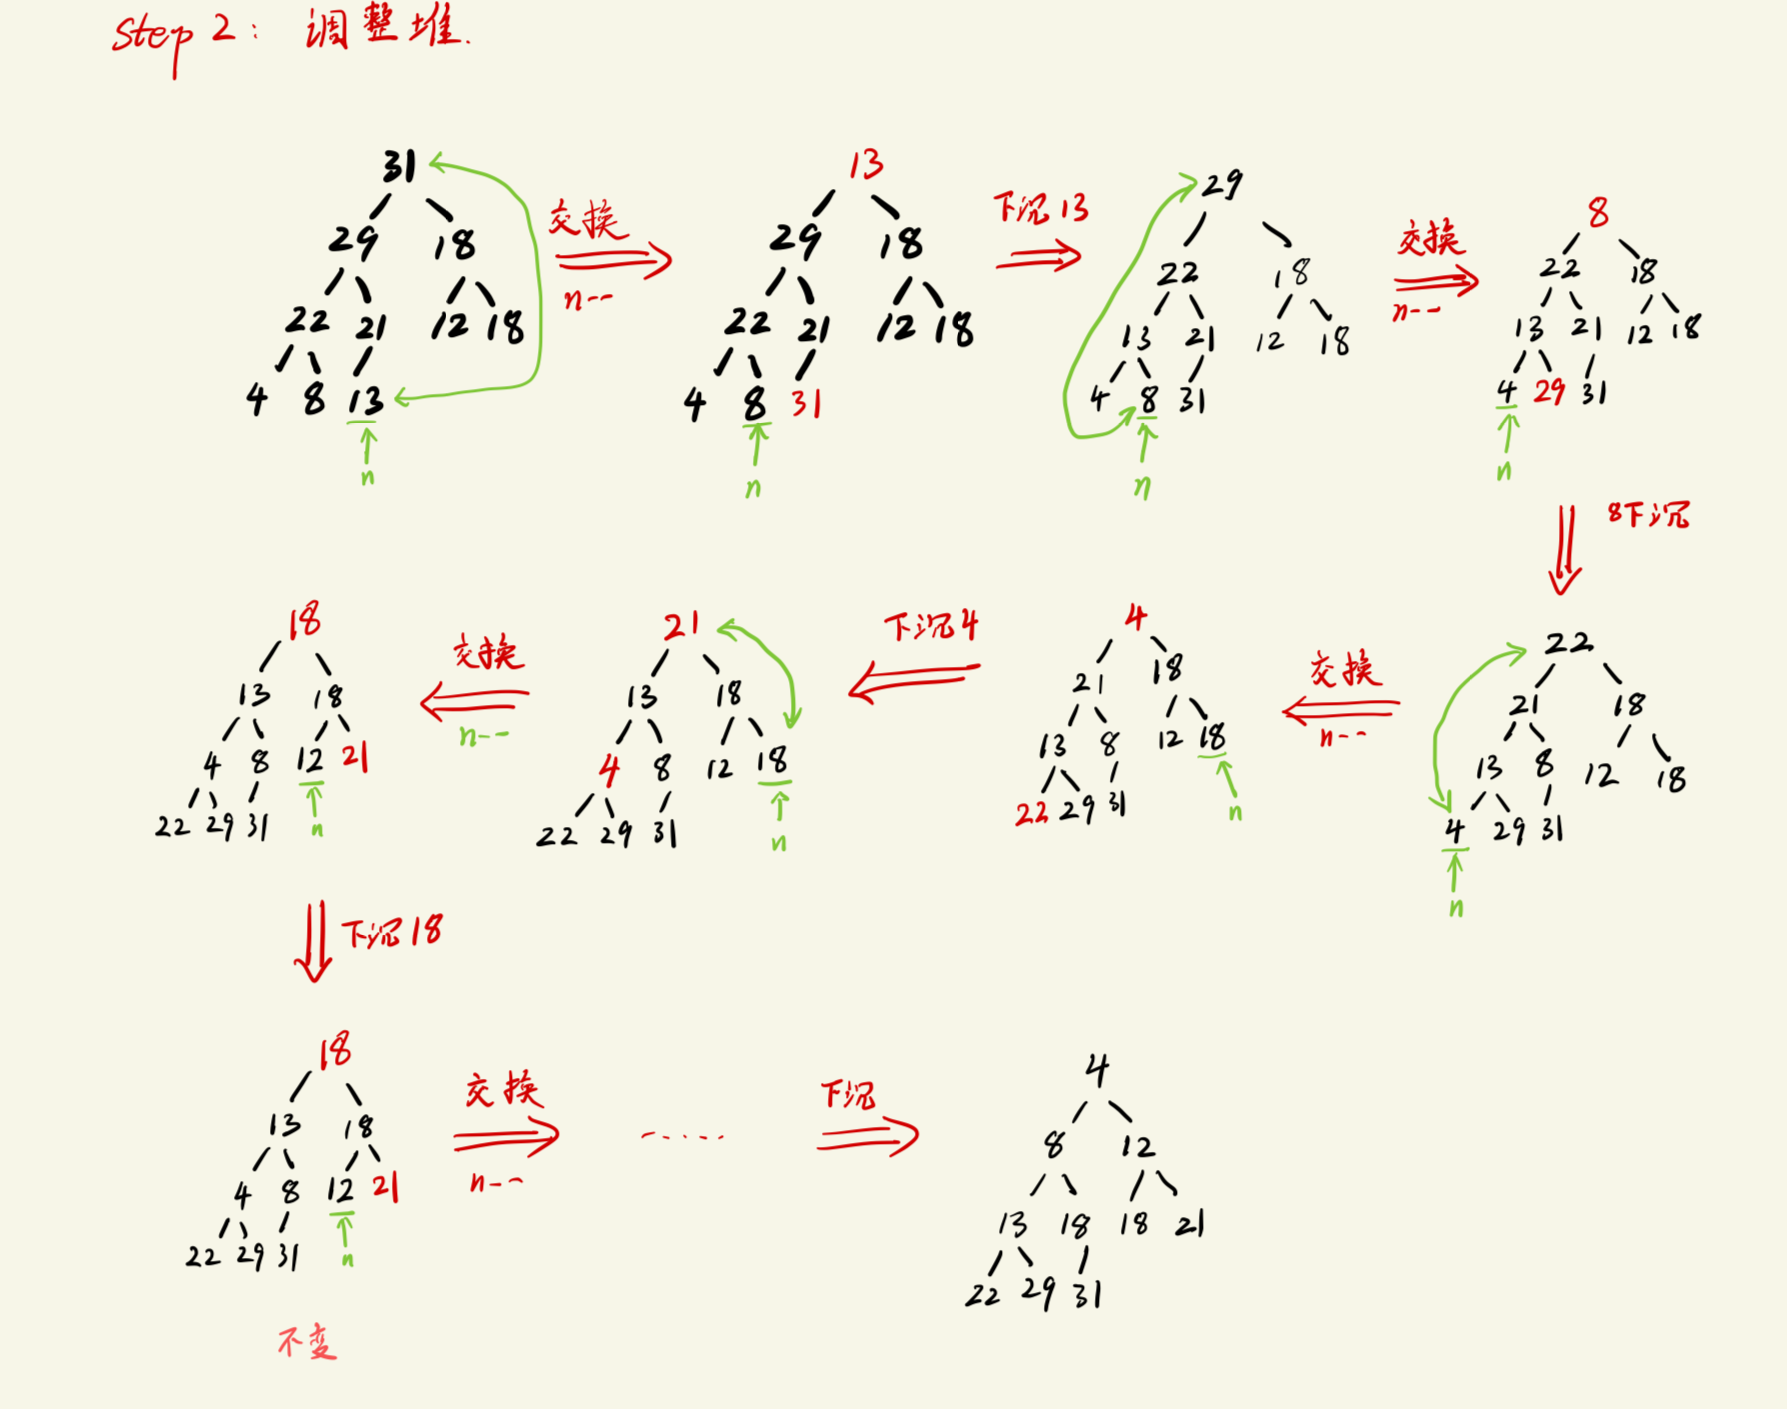 Step 2: 调整堆.
31
29 18
22 21 12 18
4 8 13
n
交换
n--
13
29 18
22 21 12 18
4 8 31
n
下沉 13
29
22 18
13 21 12 18
4 8 31
n
交换
n--
8
22 18
13 21 12 18
4 29 31
n
8下沉
22
21 18
13 8 12 18
4 29 31
n
交换
n--
4
21 18
13 8 12 18
22 29 31
n
下沉4
21
13 18
4 8 12 18
22 29 31
n
交换
n--
18
13 18
4 8 12 21
22 29 31
n
下沉 18
18
13 18
4 8 12 21
22 29 31
n
不变
交换
n--
......
下沉
4
8 12
13 18 18 21
22 29 31